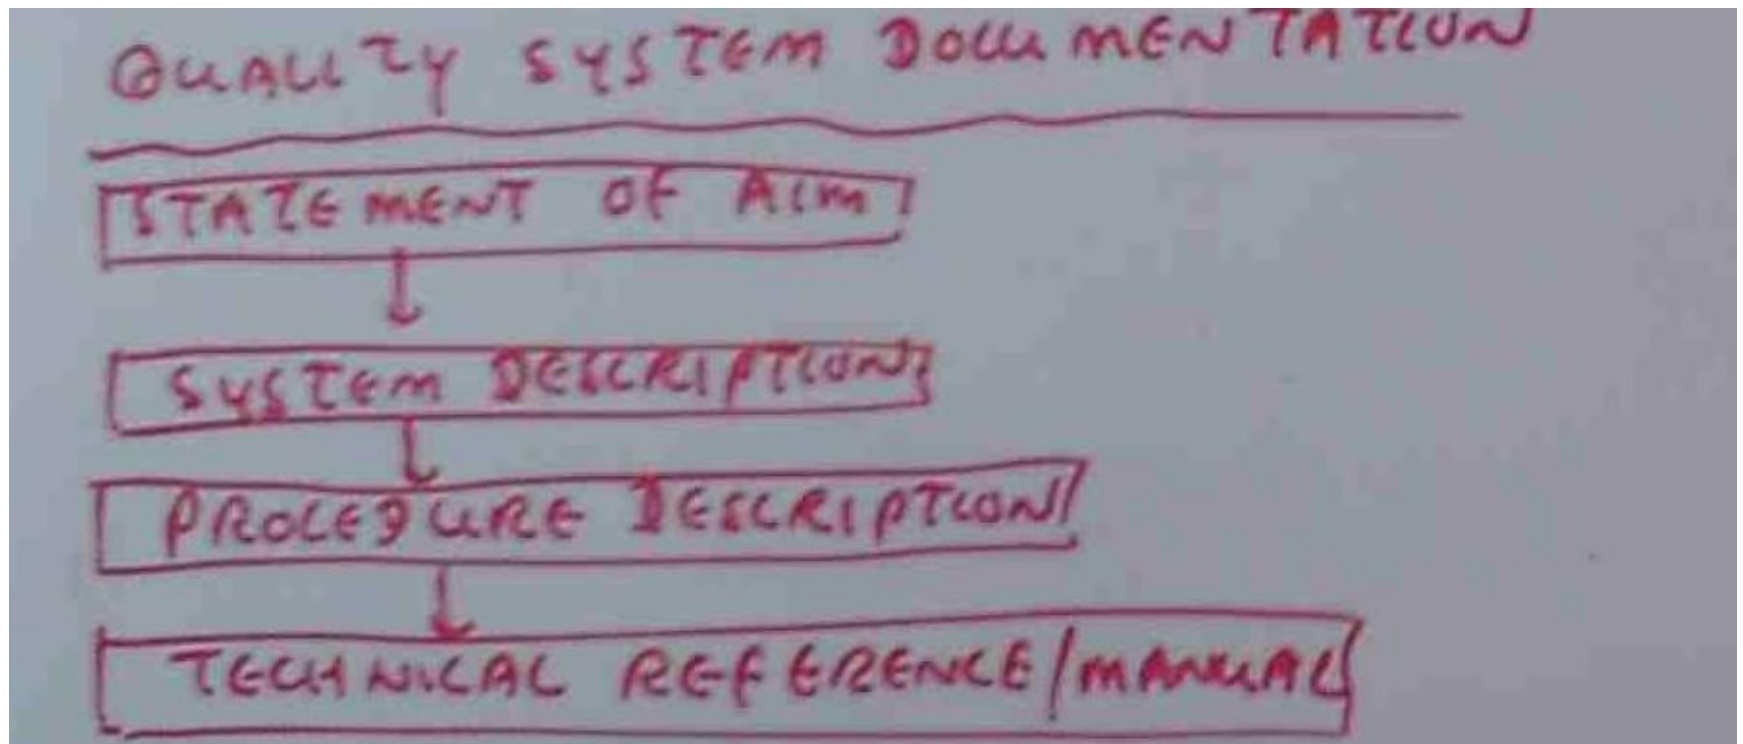 QUALITY SYSTEM DOCUMENTATION
STATEMENT OF AIM
SYSTEM DESCRIPTION
PROCEDURE DESCRIPTION
TECHNICAL REFERENCE/MANUAL